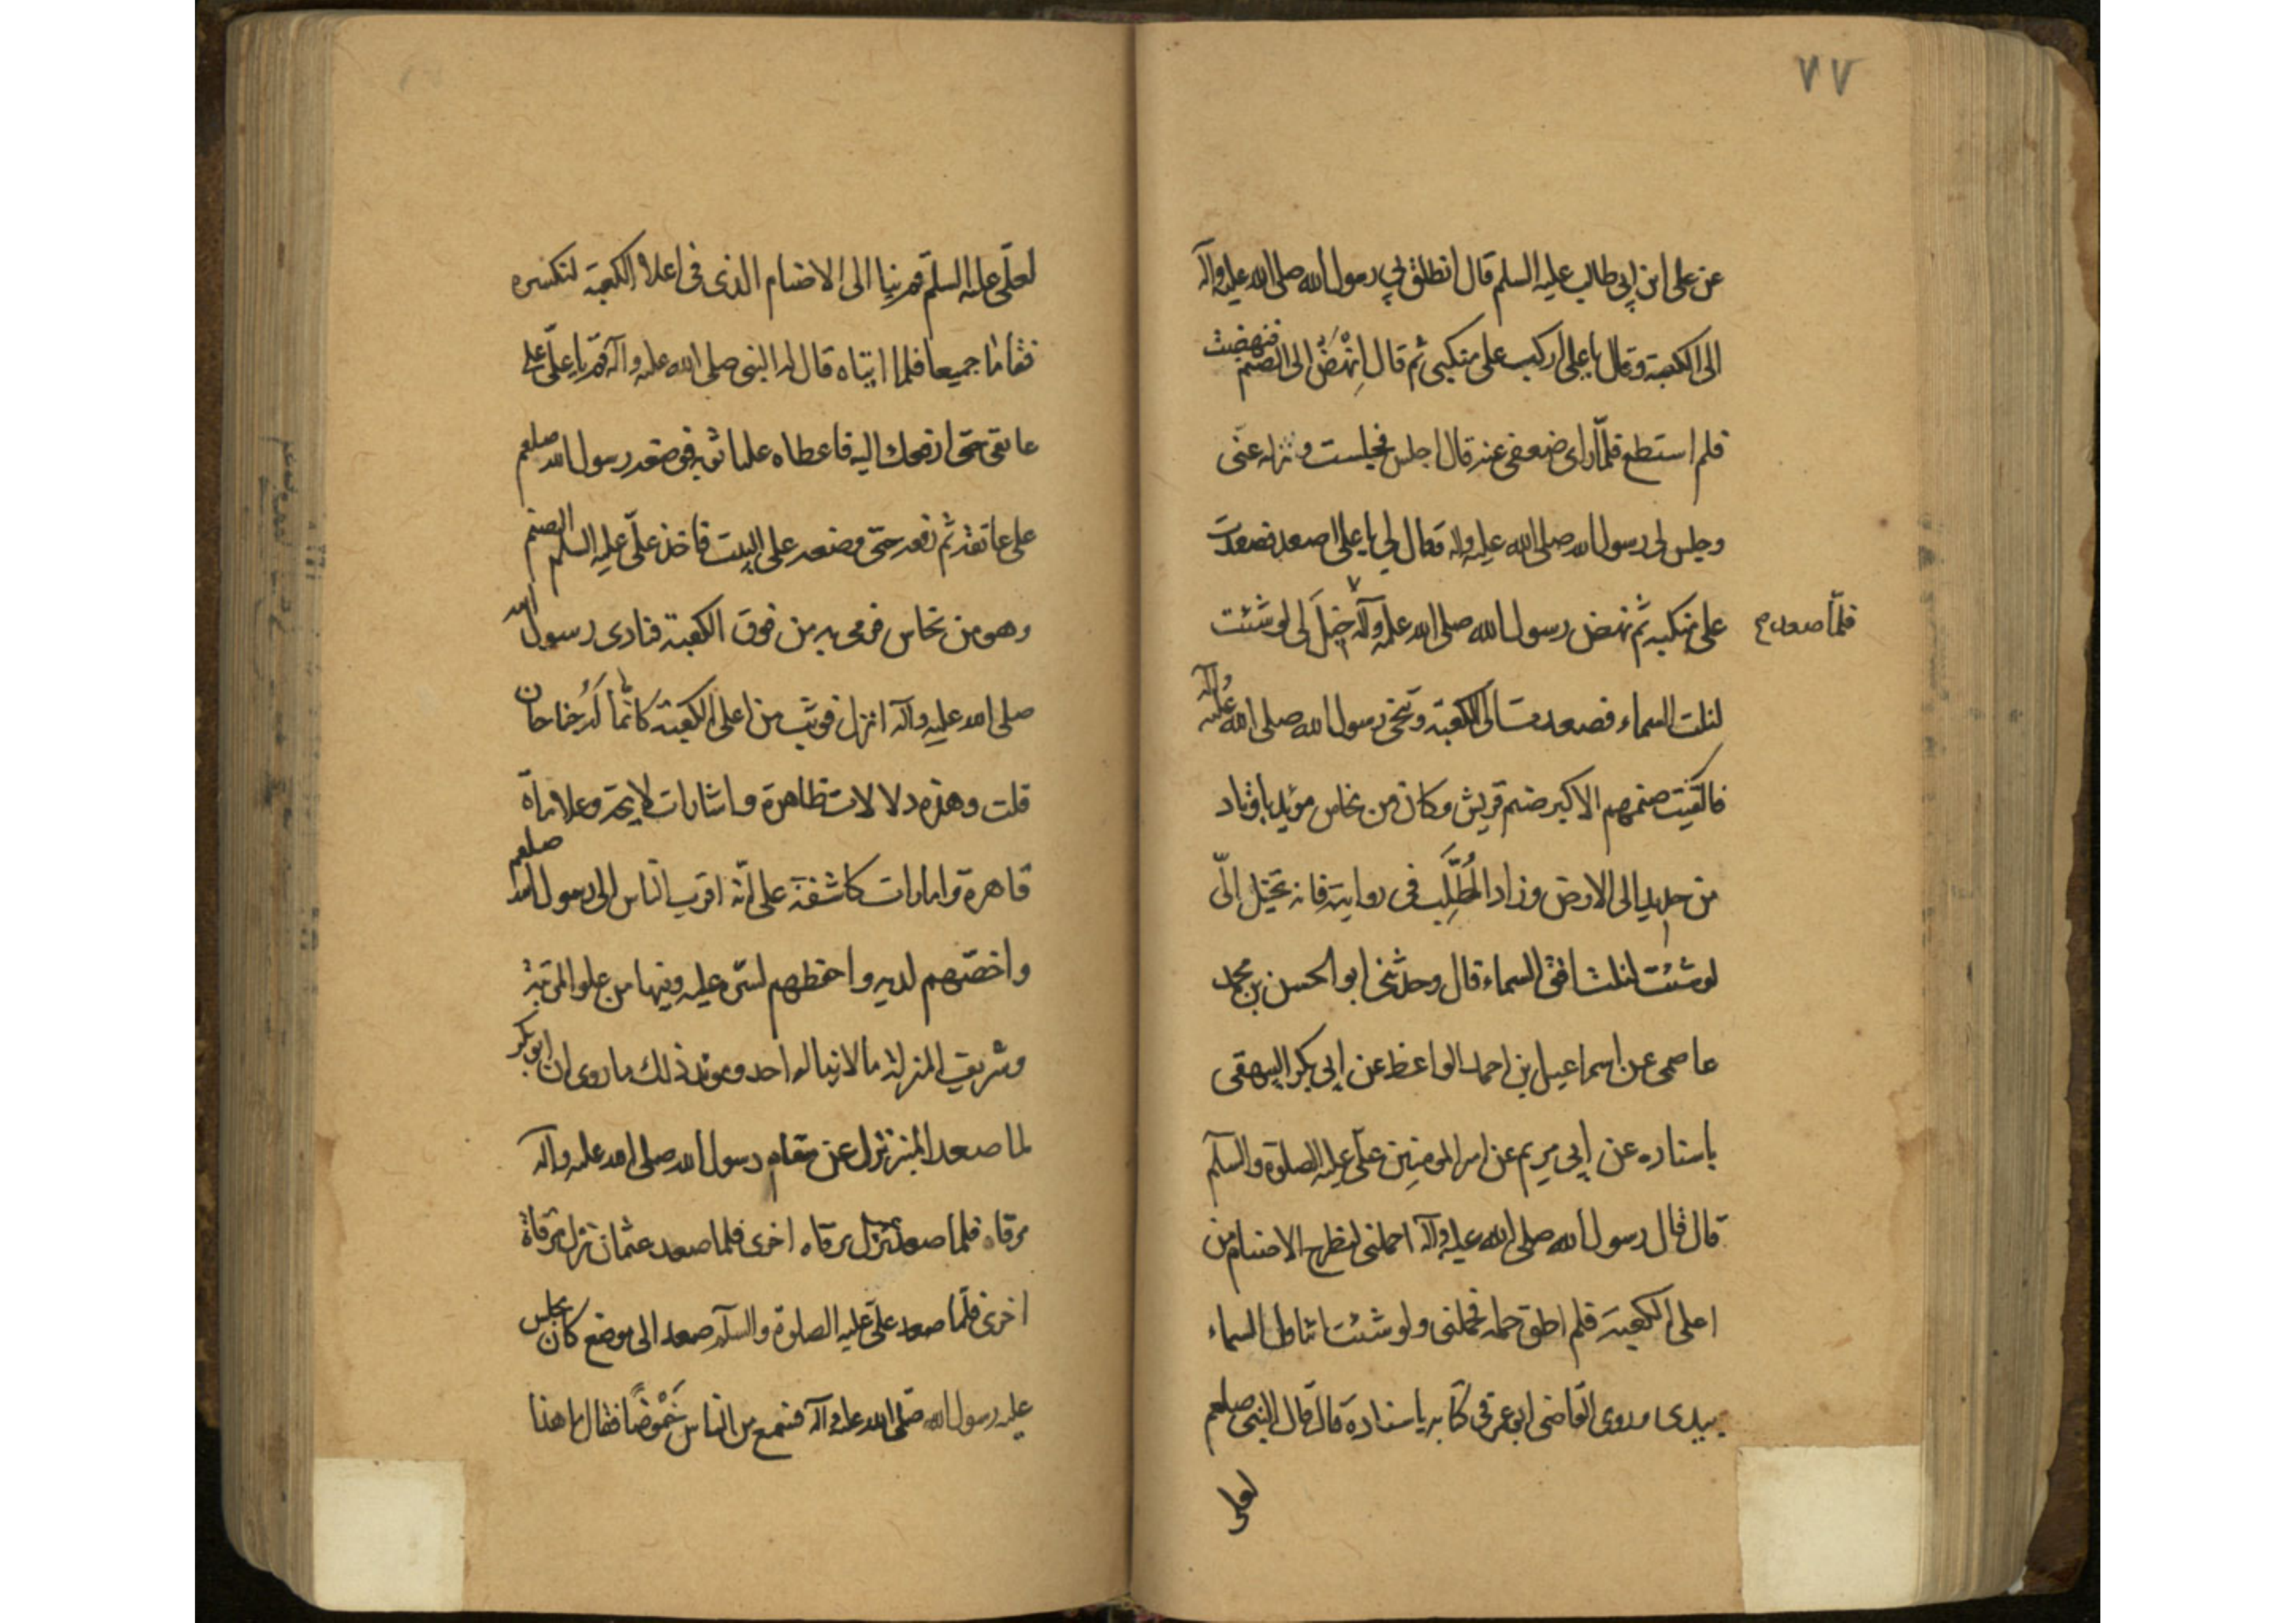 ٧٧
عن على ابن ابي طالب عليه السلم قال انطلق بي رسول الله صلى الله عليه وآله
الى الكعبة وقال يا على اركب على منكبى ثم قال انهض بى الى الصنم فنهضت
فلم استطع فلما رأى ضعفى عنه قال اجلس فجلست ونزل عنى
وجلس لى رسول الله صلى الله عليه واله وقال لى يا على اصعد فصعدت
على منكبيه ثم نهض رسول الله صلى الله عليه وآله خيل لى لو شئت
فلما صعدت
لنلت السماء فصعدت الى الكعبة وتنحى رسول الله صلى الله عليه وآله
فالقيت صنمهم الاكبر صنم قريش وكان من نحاس موتد باوتاد
من حديد الى الارض وزاد المطلب فى رواية فانه تخيل الى
لو شئت لنلت افق السماء قال وحدثنى ابو الحسن بن محمد
عاصمى عن اسماعيل بن احمد الواعظ عن ابى بكر البيهقى
باسناده عن ابى مريم عن امير المومنين على عليه الصلوة والسلم
قال قال رسول الله صلى الله عليه وآله احملنى لنطرح الاصنام من
اعلى الكعبة فلم اطق حمله فحملنى ولو شئت اتناول السماء
بيدى وروى القاضى ابو عمر فى كتابه باسناده قال قال النبى صلعم
لعلى
لعلى عليه السلم قم بنا الى الاصنام الذى فى اعلا الكعبة لنكسره
فقاما جميعا فلما اتياه قال له النبى صلى الله عليه وآله قم يا على على
عاتقى حتى ارفعك اليه فاعطاه عليا ثوبه فوضعه رسول الله صلعم
على عاتقه ثم رفعه حتى وضعه على البيت فاخذ على عليه السلم الصنم
وهو من نحاس فرمى به من فوق الكعبة فنادى رسول الله
صلى الله عليه وآله انزل فوثب من اعلى الكعبة كانما له جناحان
قلت وهذه دلالات ظاهرة واشارات لايحة وعلاماة
قاهرة وامارات كاشفة على انه اقرب الناس الى رسول الله صلعم
واخصهم لديه واحفظهم لسره عليه وفيها من علو المرتبة
وشريف المنزلة ما لا يناله احد ويويد ذلك ما روى ان ابو بكر
لما صعد المنبر نزل عن مقام رسول الله صلى الله عليه وآله
مرقاه فلما صعد عمر نزل مرقاه اخرى فلما صعد عثمان نزل مرقاة
اخرى فلما صعد على عليه الصلوة والسلم صعد الى موضع كان يجلس
عليه رسول الله صلى الله عليه وآله فسمع من الناس خوضا فقال ما هذا